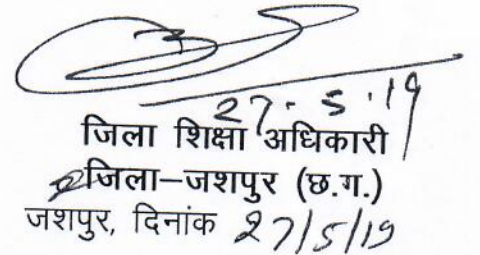 27-5-19
जिला शिक्षा अधिकारी
जिला–जशपुर (छ.ग.)
जशपुर, दिनांक 27/5/19